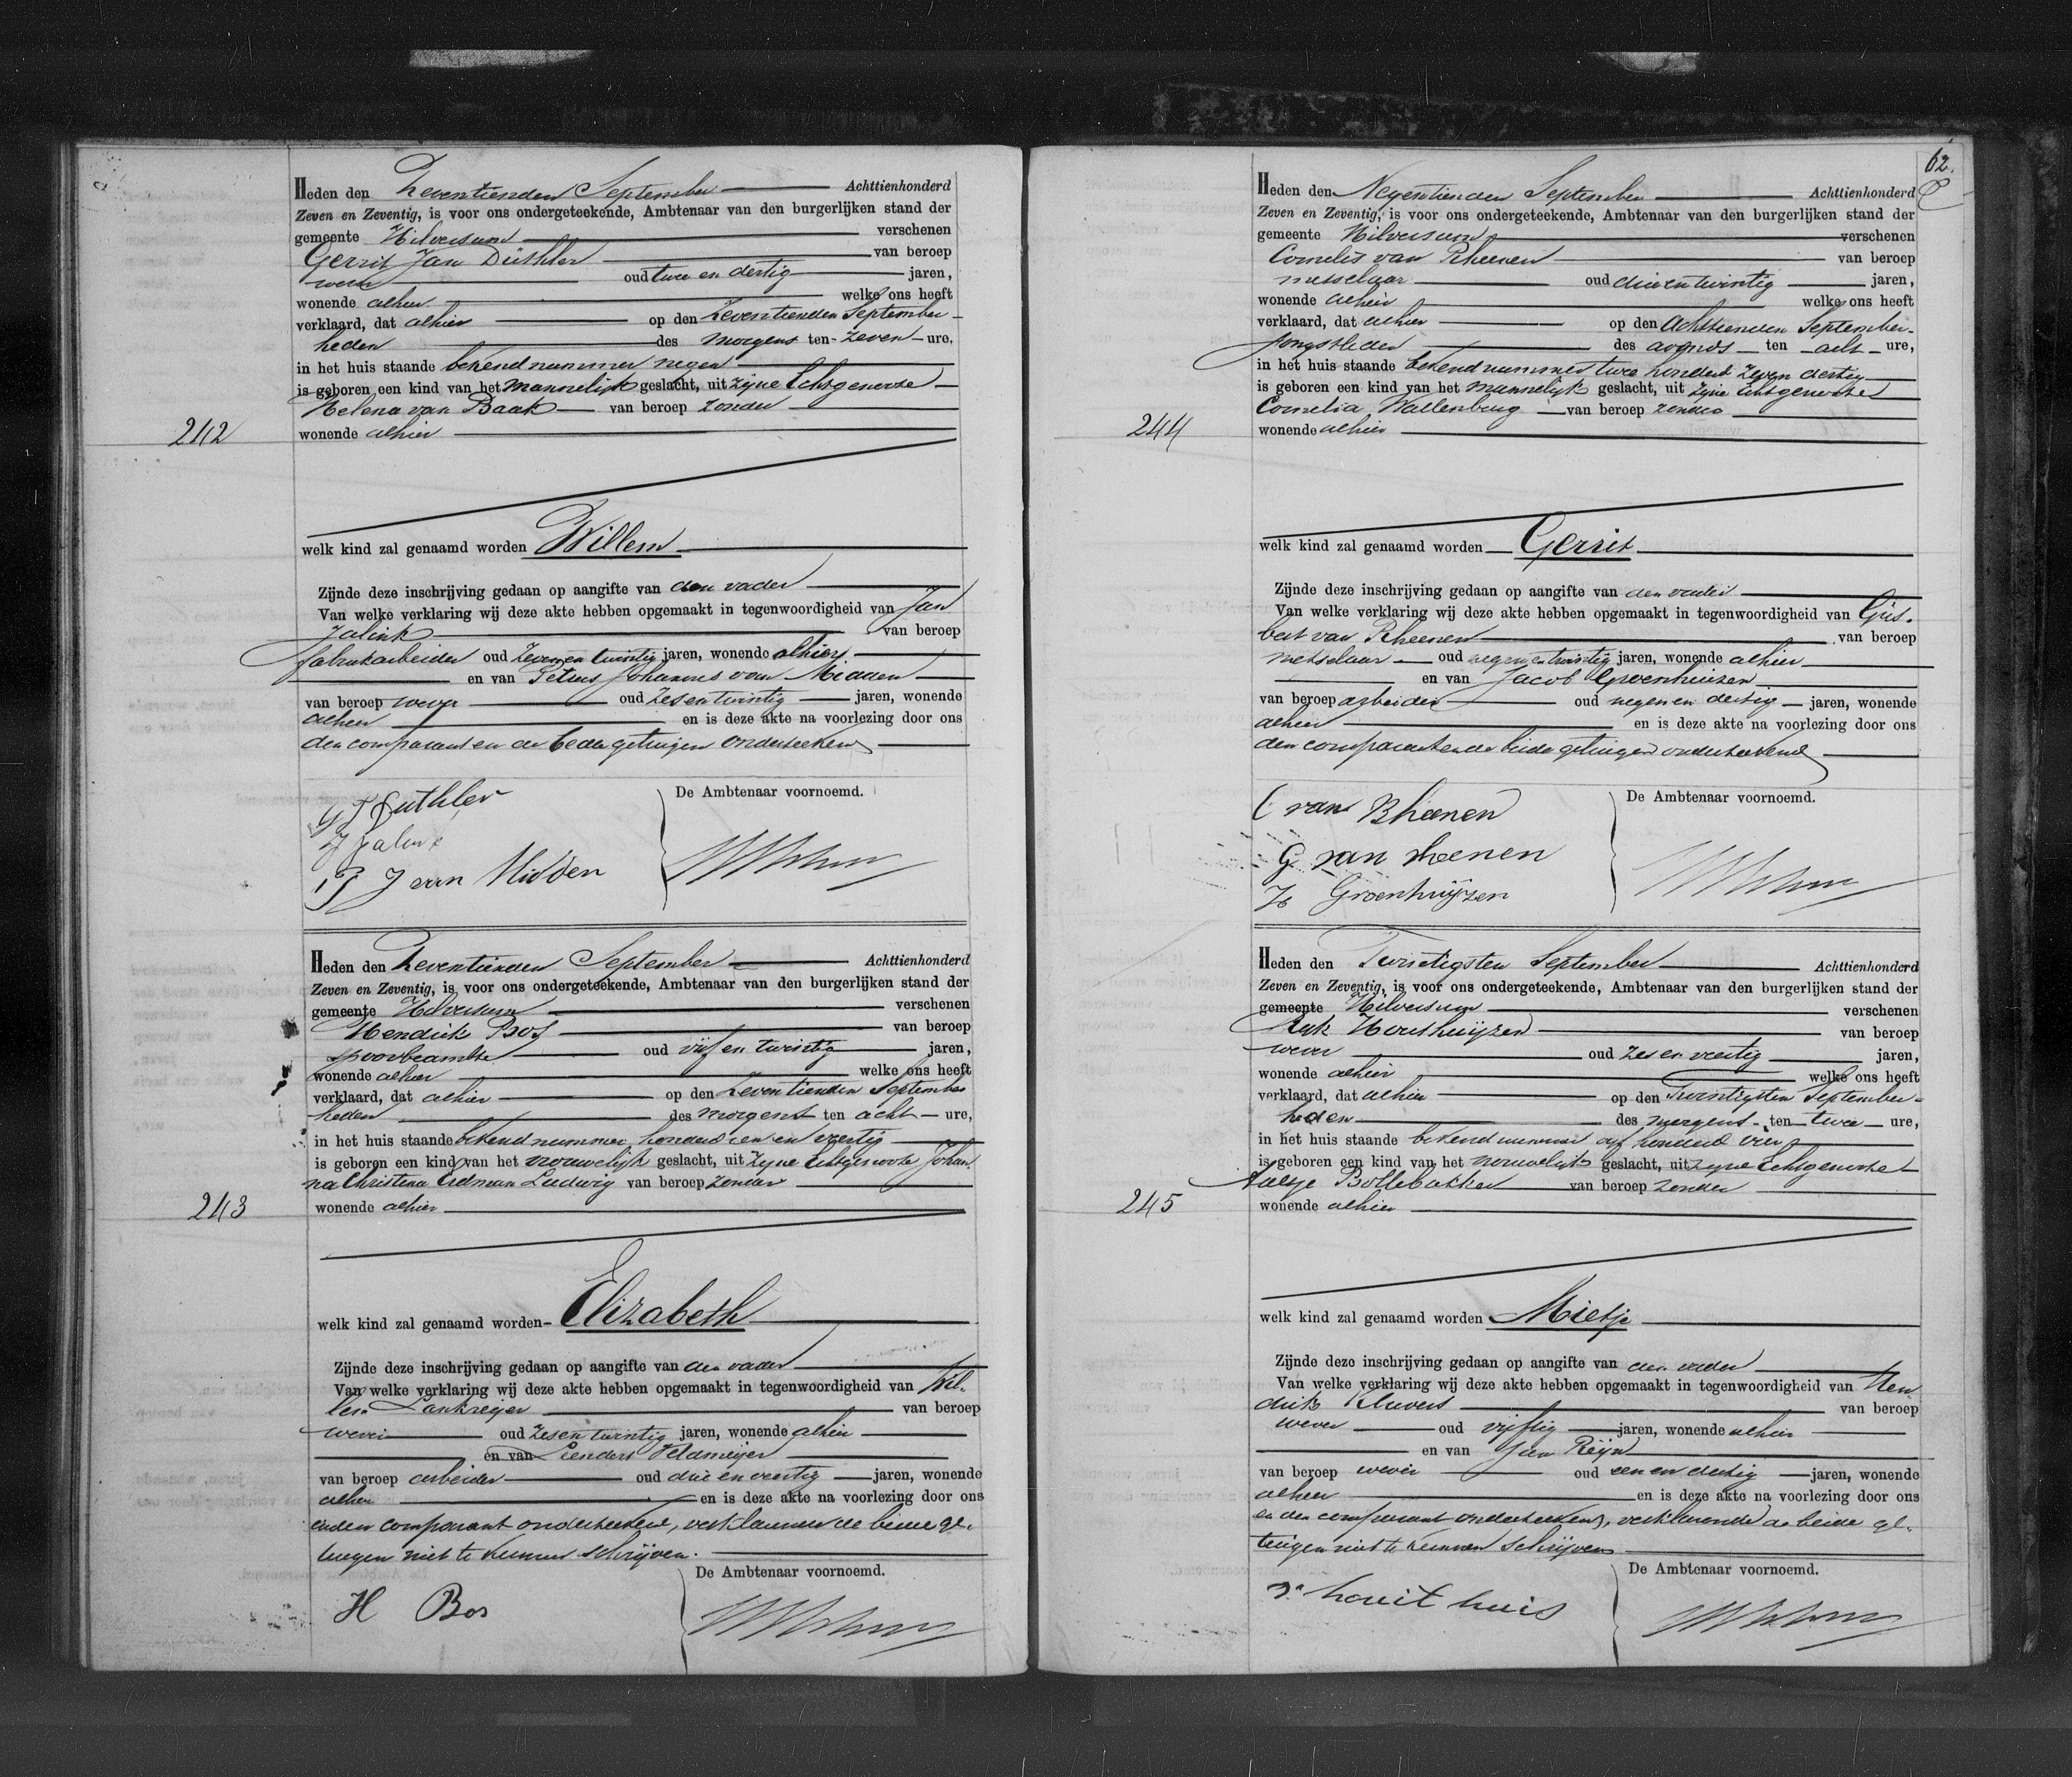 Heden den Zeventienden September Achttienhonderd
Zeven en Zeventig, is voor ons ondergeteekende, Ambtenaar van den burgerlijken stand der
gemeente Hilversum verschenen
Gerrit Jan Düthler van beroep
wever oud twee en dertig jaren,
wonende alhier welke ons heeft
verklaard, dat alhier op den Zeventienden September
heden des morgens ten zeven ure,
in het huis staande bekend nummer negen
is geboren een kind van het mannelijk geslacht, uit zijne Echtgenoote
Helena van Baak van beroep zonder
242
wonende alhier
welk kind zal genaamd worden Willem
Zijnde deze inschrijving gedaan op aangifte van den vader
Van welke verklaring wij deze akte hebben opgemaakt in tegenwoordigheid van Jan
Jalink van beroep
fabriekarbeider oud Zeven en twintig jaren, wonende alhier
en van Petrus Johannes van Midden
van beroep wever oud Zes en twintig jaren, wonende
alhier en is deze akte na voorlezing door ons
den comparant en de beide getuigen onderteekend
De Ambtenaar voornoemd.
G J Duthler
J Jalink
P J van Midden
Heden den Zeventienden September Achttienhonderd
Zeven en Zeventig, is voor ons ondergeteekende, Ambtenaar van den burgerlijken stand der
gemeente Hilversum verschenen
Hendrik Bos van beroep
spoorbeambte oud vijf en twintig jaren,
wonende alhier welke ons heeft
verklaard, dat alhier op den Zeventienden September
heden des morgens ten acht ure,
in het huis staande bekend nummer honderd een en veertig
is geboren een kind van het vrouwelijk geslacht, uit zijne Echtgenoote Johan
na Christina Erdman Ludwig van beroep zonder
243
wonende alhier
welk kind zal genaamd worden Elizabeth
Zijnde deze inschrijving gedaan op aangifte van den vader
Van welke verklaring wij deze akte hebben opgemaakt in tegenwoordigheid van Wil-
lem Lankreyer van beroep
wever oud Zes en twintig jaren, wonende alhier
en van Leendert Veldmeijer
van beroep arbeider oud drie en veertig jaren, wonende
alhier en is deze akte na voorlezing door ons
en den comparant onderteekend, verklarende de beide ge-
tuigen niet te kunnen schrijven.
De Ambtenaar voornoemd.
H Bos
62
Heden den Negentienden September Achttienhonderd
Zeven en Zeventig, is voor ons ondergeteekende, Ambtenaar van den burgerlijken stand der
gemeente Hilversum verschenen
Cornelis van Rheenen van beroep
metselaar oud drie en twintig jaren,
wonende alhier welke ons heeft
verklaard, dat alhier op den Achttienden September
jongstleden des avonds ten acht ure,
in het huis staande bekend nummer twee honderd zeven dertig
is geboren een kind van het mannelijk geslacht, uit zijne Echtgenoote
Cornelia Wallenburg van beroep zonder
244
wonende alhier
welk kind zal genaamd worden Gerrit
Zijnde deze inschrijving gedaan op aangifte van den vader
Van welke verklaring wij deze akte hebben opgemaakt in tegenwoordigheid van Gijs-
bert van Rheenen van beroep
metselaar oud negen en twintig jaren, wonende alhier
en van Jacob Groenhuizen
van beroep arbeider oud negen en dertig jaren, wonende
alhier en is deze akte na voorlezing door ons
den comparant en de beide getuigen onderteekend
De Ambtenaar voornoemd.
C van Rheenen
G van rheenen
Js Groenhuijzen
Heden den Twintigsten September Achttienhonderd
Zeven en Zeventig, is voor ons ondergeteekende, Ambtenaar van den burgerlijken stand der
gemeente Hilversum verschenen
Rijk Houthuijzen van beroep
wever oud Zes en veertig jaren,
wonende alhier welke ons heeft
verklaard, dat alhier op den Twintigsten September
heden des morgens ten twee ure,
in het huis staande bekend nummer vijf honderd vier
is geboren een kind van het vrouwelijk geslacht, uit zijne Echtgenoote
Aaltje Bollebakker van beroep zonder
245
wonende alhier
welk kind zal genaamd worden Mietje
Zijnde deze inschrijving gedaan op aangifte van den vader
Van welke verklaring wij deze akte hebben opgemaakt in tegenwoordigheid van Hen
drik Kluvers van beroep
wever oud vijftig jaren, wonende alhier
en van Jan Reijn
van beroep wever oud een en dertig jaren, wonende
alhier en is deze akte na voorlezing door ons
en den comparant onderteekend, verklarende de beide ge-
tuigen niet te kunnen schrijven
De Ambtenaar voornoemd.
houit huis